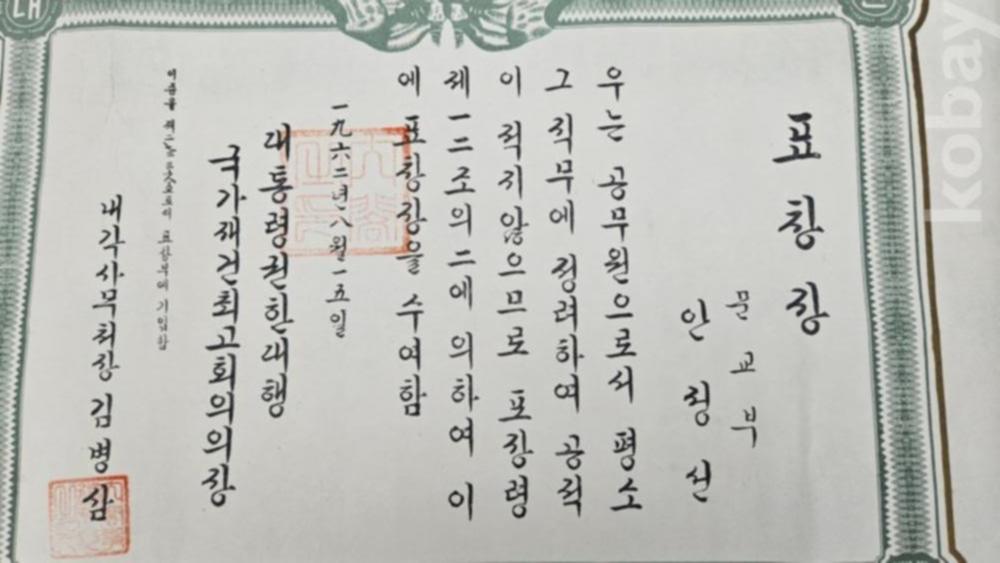 표창장
문교부
안정선
우는 공무원으로서 평소
그 직무에 정려하여 공적
이 적지않으므로 포장령
제一二조의二에 의하여 이
에 표창장을 수여함
一九六二년八월一五일
대통령권한대행
국가재건최고회의의장
이증을 표창부에 기입함
내각사무처장 김병삼
kobay